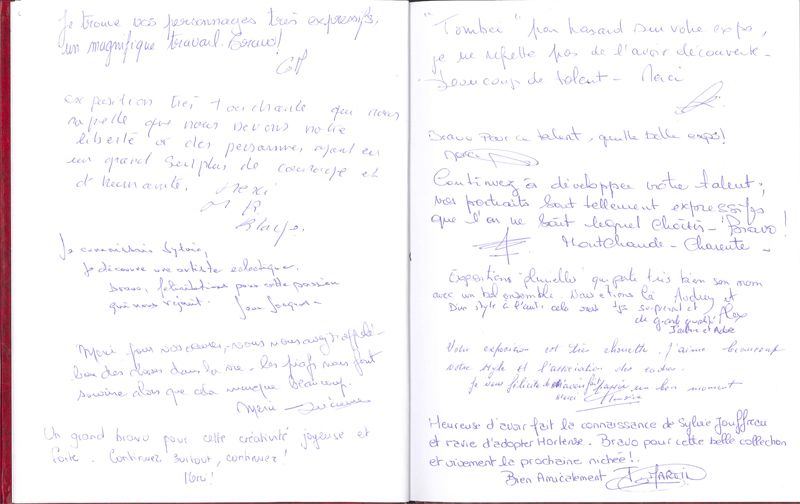 Je trouve vos personnages très expressifs,
un magnifique travail. Bravo!
exposition très touchante qui nous
rappelle que nous devons notre
liberté à des personnes ayant eu
un grand surplus de courage et
d'humanité.
Merci
Je connaissais Sylvie,
Je découvre une artiste eclectique.
bravo, félicitations pour cette passion
qui nous réjouit.
Merci pour vos vous nous avez
des choses dans la vie. Les piafs nous font
sourire alors que cela manque beaucoup.
Merci
Un grand bravo pour cette créativité joyeuse et
forte. Continuez surtout, continuez!
Merci!
"Tomber" par hasard sur votre expo,
je ne regrette pas de l'avoir découverte -
Beaucoup de talent - Merci
Bravo pour ce talent, quelle belle expo!
Merci
Continuez à développer votre talent,
vos portraits sont tellement expressifs
que l'on ne sait lequel choisir - Bravo!
Montchaude - Charente -
Expositions "plurielles" qui porte très bien son nom
avec un bel ensemble.
style à l'autre, cela
Votre exposition est très chouette. J'aime beaucoup
votre style et l'association des cadres.
Je vous félicite un bon moment
Merci
Heureuse d'avoir fait la connaissance de Sylvie Jouffreau
et ravie d'adopter Hortense. Bravo pour cette belle collection
et vivement la prochaine nichée!.
Bien Amicalement